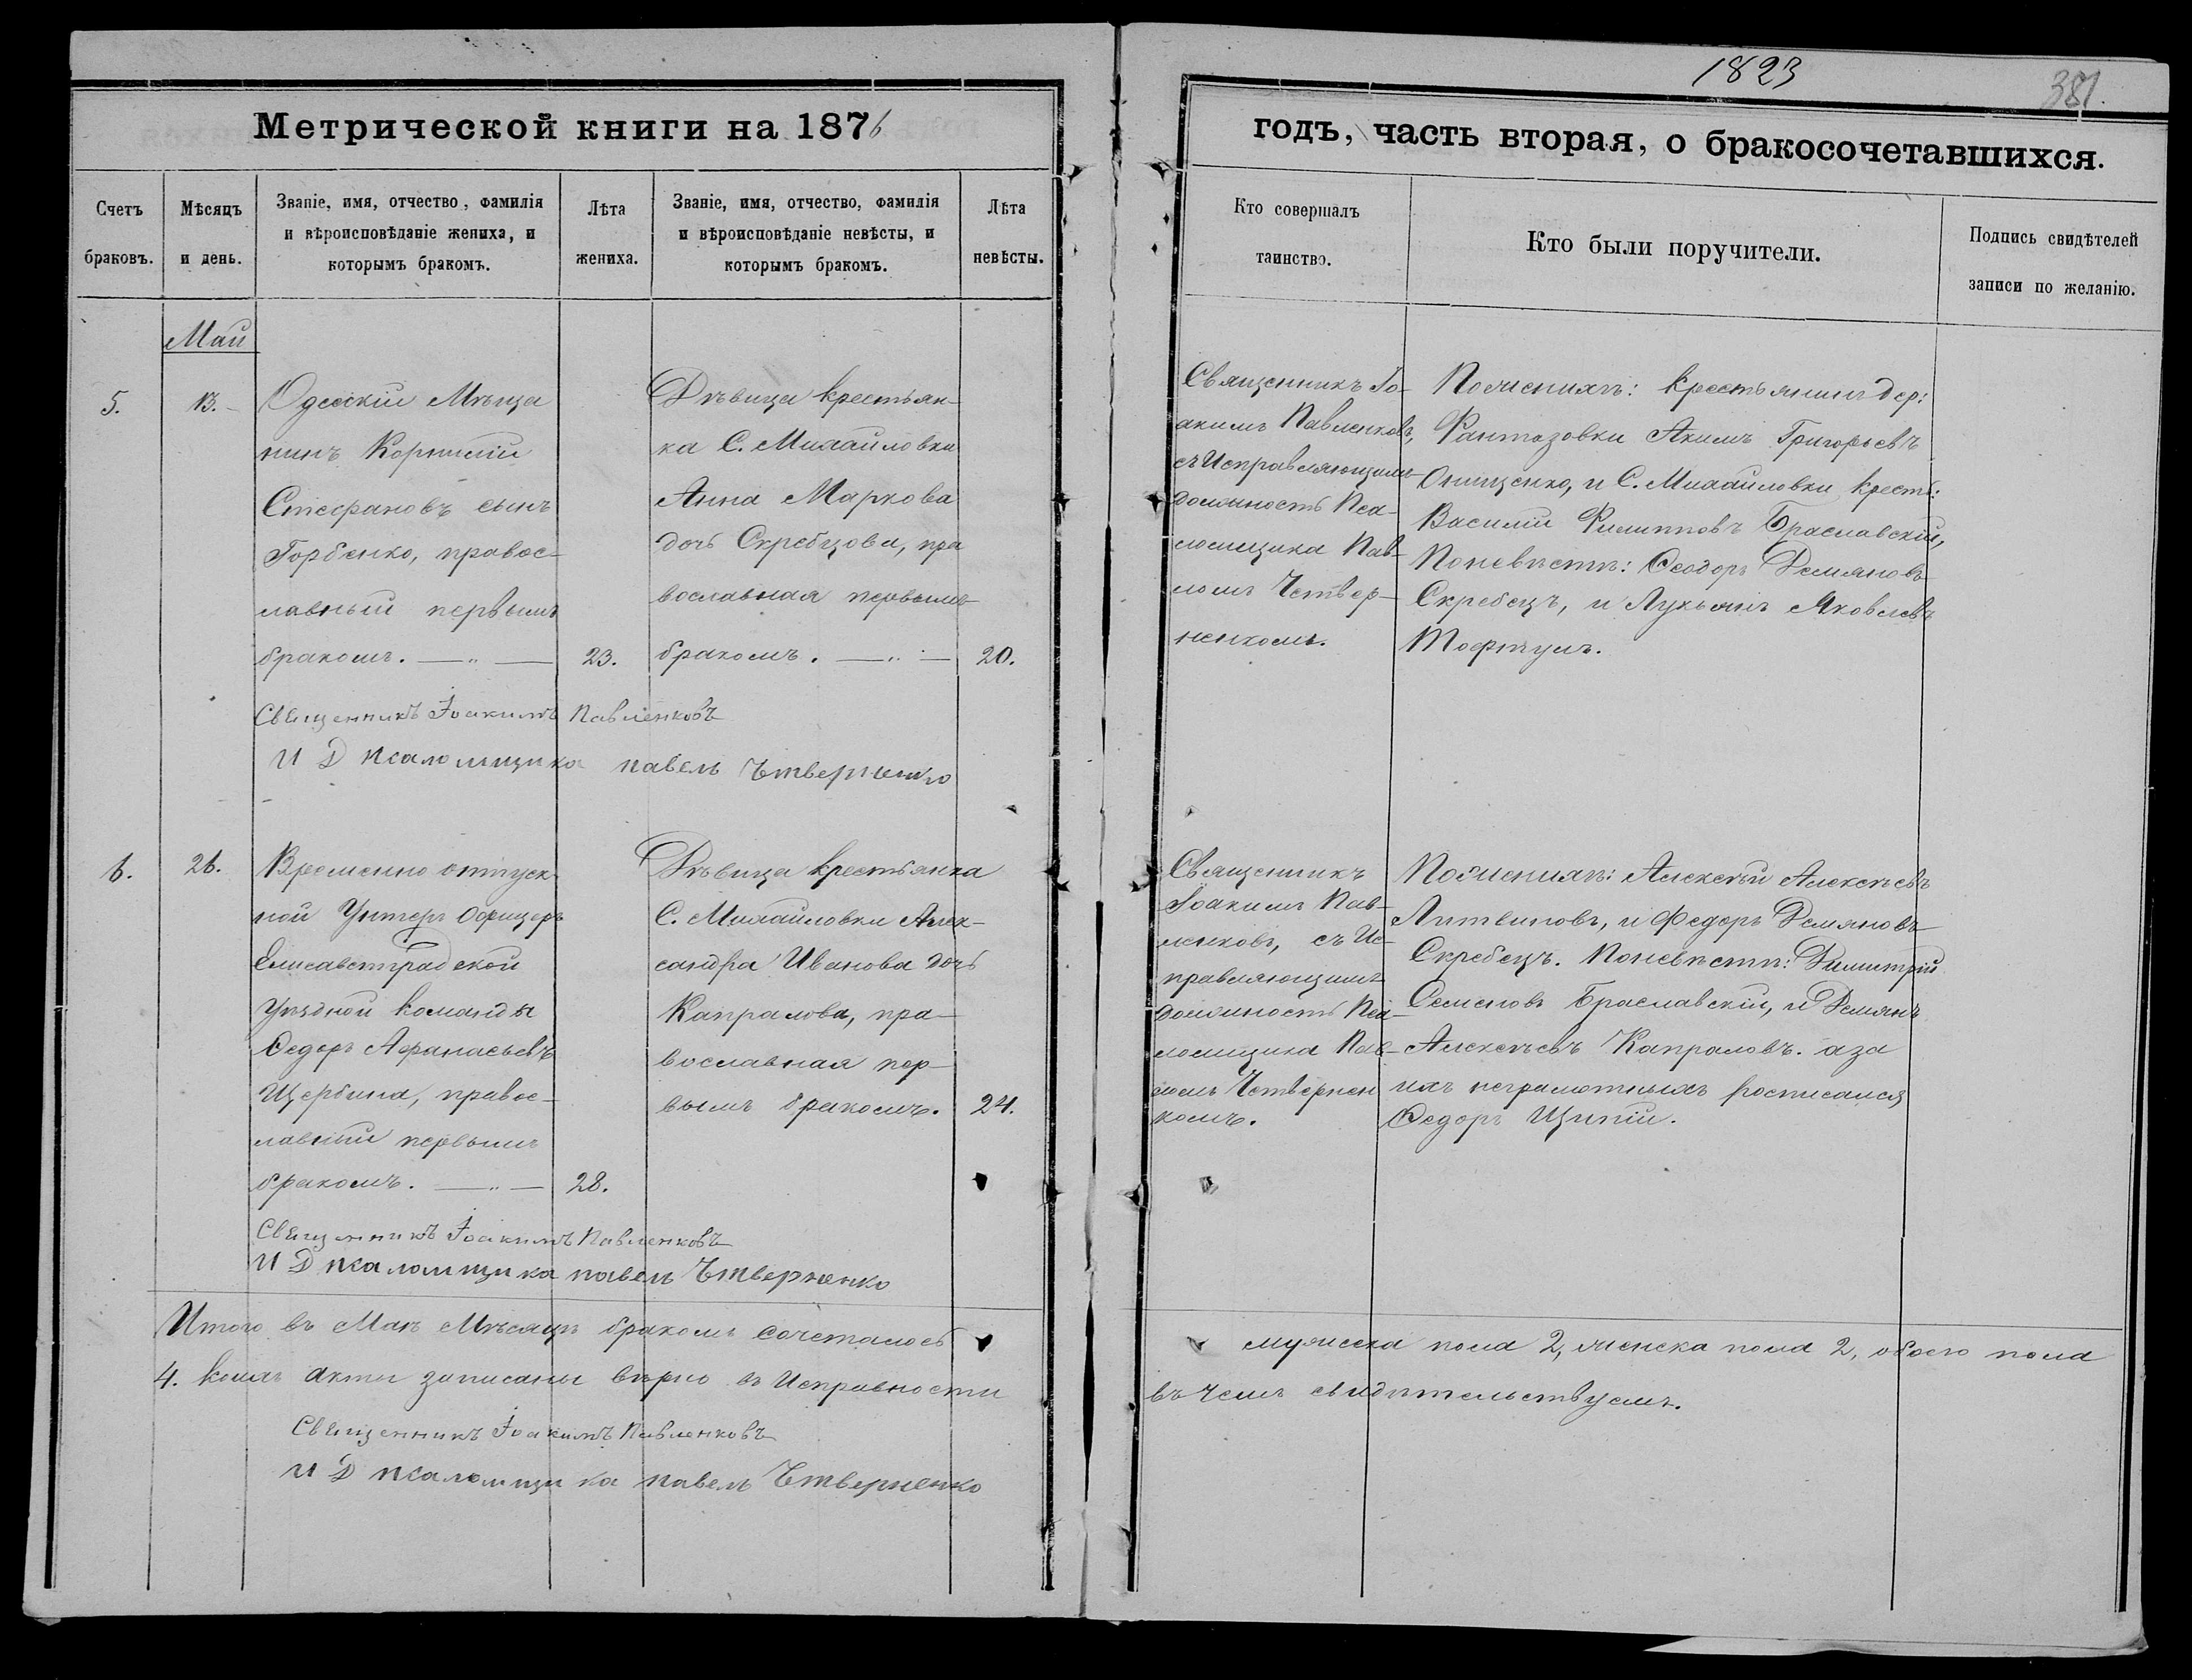 1823
381.
Метрической книги на 1876
годъ, часть вторая, о бракосочетавшихся.
Счетъ браковъ.
Мѣсяцъ и день.
Званіе, имя, отчество, фамилія и вѣроисповѣданіе жениха, и которымъ бракомъ.
Лѣта жениха.
Званіе, имя, отчество, фамилія и вѣроисповѣданіе невѣсты, и которымъ бракомъ.
Лѣта невѣсты.
Кто совершалъ таинство.
Кто были поручители.
Подпись свидѣтелей записи по желанію.
Май
5.
13.
Одесскій Мѣща
нинъ Корнилій
Стефановъ сынъ
Горбенко, правос-
лавный первымъ
бракомъ. — „ —
23.
Дѣвица крестьян-
ка С. Михайловки
Анна Маркова
дочь Скребцова, пра
вославная первымъ
бракомъ. — „ —
20.
Священникъ Іо-
акимъ Павленковъ,
съ Исправляющимъ
должность Пса-
ломщика Пав-
ломъ Четвер-
ненкомъ.
По женихѣ: крестьянинъ дер:
Фантазовки Акимъ Григорьевъ
Онищенко, и С. Михайловки крест:
Василій Филипповъ Браславскій,
По невѣстѣ: Ѳеодоръ Демяновъ
Скребецъ, и Лукьянъ Яковлевъ
Тофтулъ.
Священникъ Іоакимъ Павленковъ
И Д псаломщика павелъ Чтверненко
6.
26.
Временно отпуск
ной Унтеръ Офицеръ
Елисаветградской
Уѣздной команды
Ѳедоръ Афанасьевъ
Щербина, правос-
лавный первымъ
бракомъ. — „ —
28.
Дѣвица крестьянка
С. Михайловки Алек-
сандра Иванова дочь
Капралова, пра-
вославная пер-
вымъ бракомъ.
24.
Священникъ
Іоакимъ Пав-
ленковъ, съ Ис-
правляющимъ
должность Пса-
ломщика Пав-
ломъ Четвернен
комъ.
По женихѣ: Алексѣй Алексѣевъ
Литвиновъ, и Федоръ Демяновъ
Скребецъ. По невѣстѣ: Димитрій
Семеновъ Браславскій, и Демянъ
Алексѣевъ Капраловъ. а за
ихъ неграмотныхъ росписался
Ѳедоръ Щипій.
Священникъ Іоакимъ Павленковъ
И Д псаломщика павелъ Чтверненко
Итого въ Маѣ Мѣсяцѣ бракомъ сочеталось
мужеска пола 2, женска пола 2, обоего пола
4. коихъ акты записаны вѣрно въ Исправности
въ чемъ свидѣтельствуемъ.
Священникъ Іоакимъ Павленковъ
И Д псаломщика павелъ Чтверненко